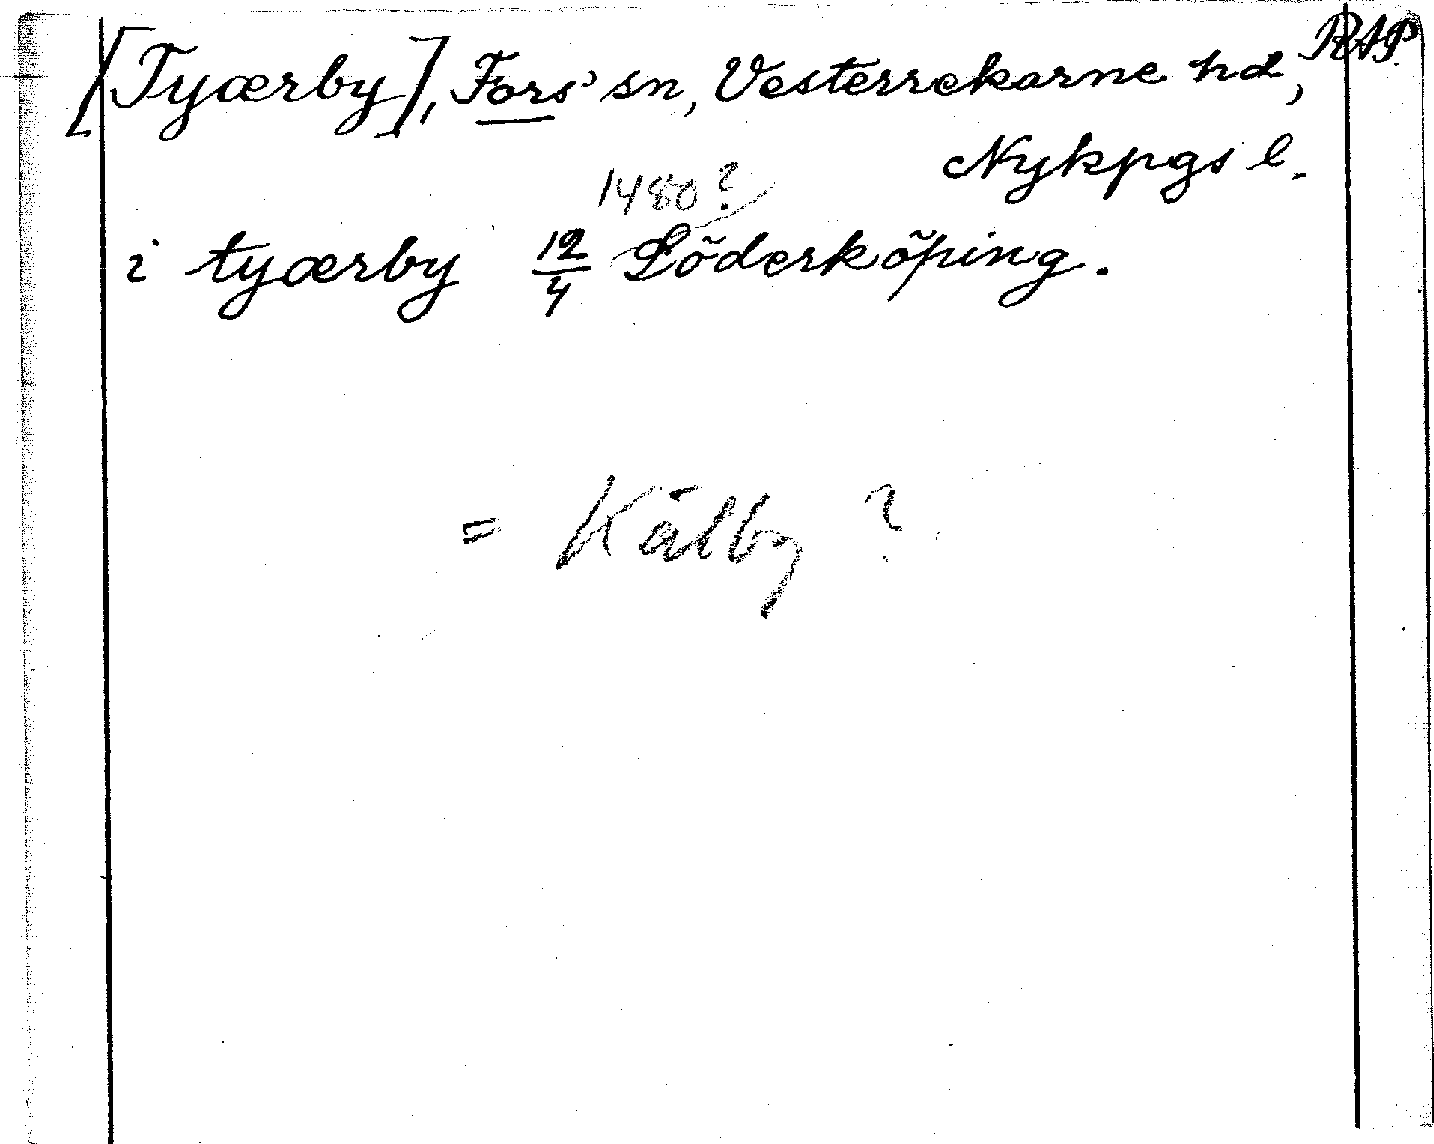 [Tyærby], Fors' sn, Vesterrekarne hd, RAP.
Nykpgs l.
1480?
i tyærby 12/4 Söderköping.
= Kälby ?